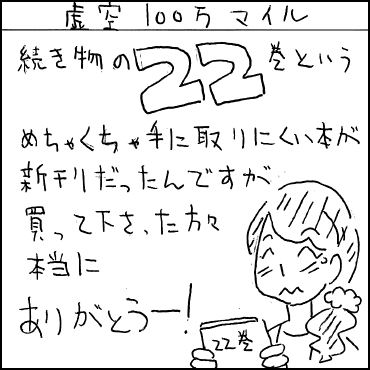 虚空100万マイル
続き物の22巻という
めちゃくちゃ手に取りにくい本が
新刊だったんですが
買って下さった方々
本当に
ありがとうー!
22巻